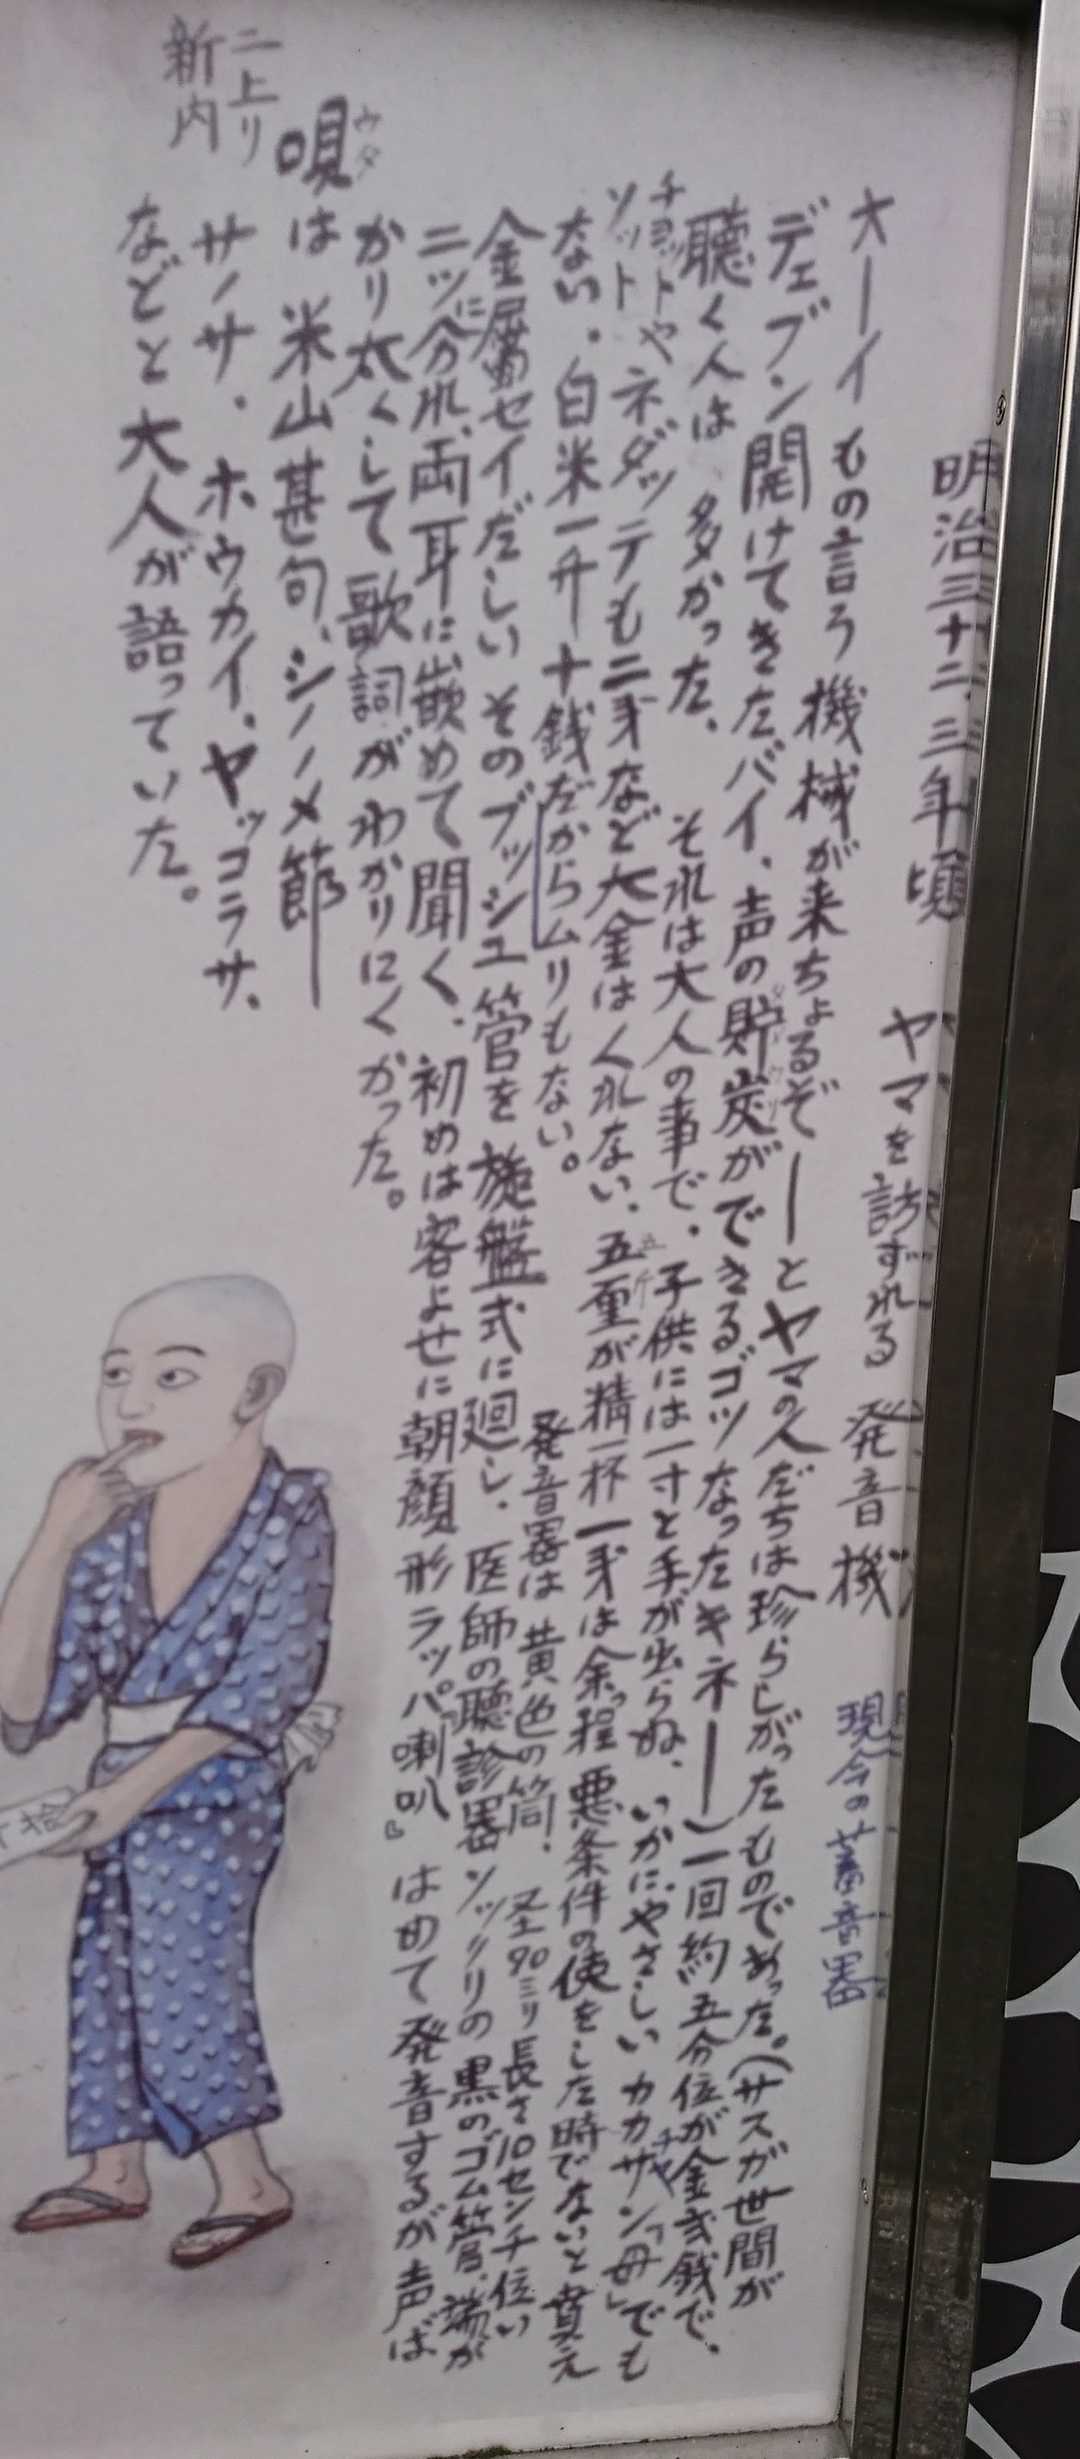 明治三十二、三年頃 ヤマを訪ずれる 発音機 現今の蓄音器
大ーイもの言ろ機械が来ちょるぞーーとヤマの人だちは珍らしがったものであった。(サスが世間が
デェブン開けてきたバイ、声の貯炭ができるゴツなったキネーー)一回約五分位が金弍銭で、
聴く人は多かった、 それは大人の事で、子供には一寸と手が出らぬ、いかにやさしいカカサン「母」でも
チョット
ソットやネダッテも二弐など大金はくれない、五厘が精一杯一弐は余っ程悪条件の使をした時でないと貰え
ない。白米一升十銭だからムリもない。 発音器は黄色の筒. 径90ミリ長さ10センチ位い
金属セイだしい そのブッシュ管を施盤式に廻し、医師の聴診器ソックリの黒のゴム管、端が
ニッに分れ、両耳に嵌めて聞く、初めは客よせに朝顔形ラッパ『喇叭』はめて発音するが声ば
かり太くして歌詞がわかりにくかった。
唄は 米山甚句、シノノメ節
ウタ
サノサ、ホウカイ、ヤッコラサ、
二上り
新内
などと大人が語っていた。